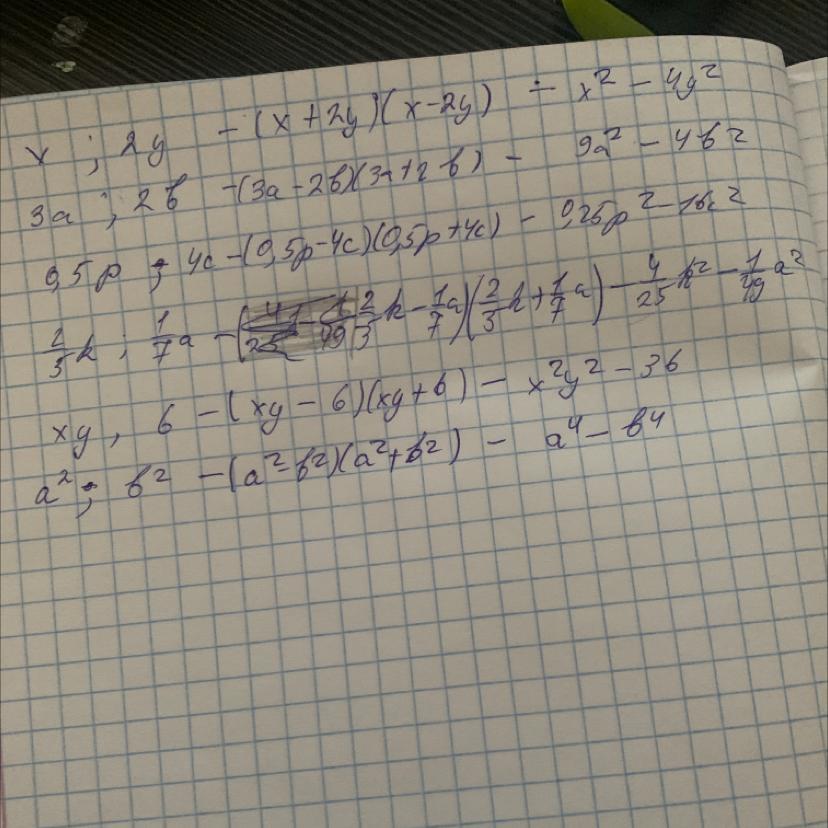 x ; 2y - (x + 2y)(x - 2y) - x² - 4y²
3a ; 2b - (3a - 2b)(3a + 2b) - 9a² - 4b²
0,5p ; 4c - (0,5p - 4c)(0,5p + 4c) - 0,25p² - 16c²
2/5 k ; 1/7 a - (2/3 k - 1/7 a)(2/3 k + 1/7 a) - 4/25 k² - 1/49 a²
xy, 6 - (xy - 6)(xy + 6) - x²y² - 36
a² ; b² - (a² - b²)(a² + b²) - a⁴ - b⁴